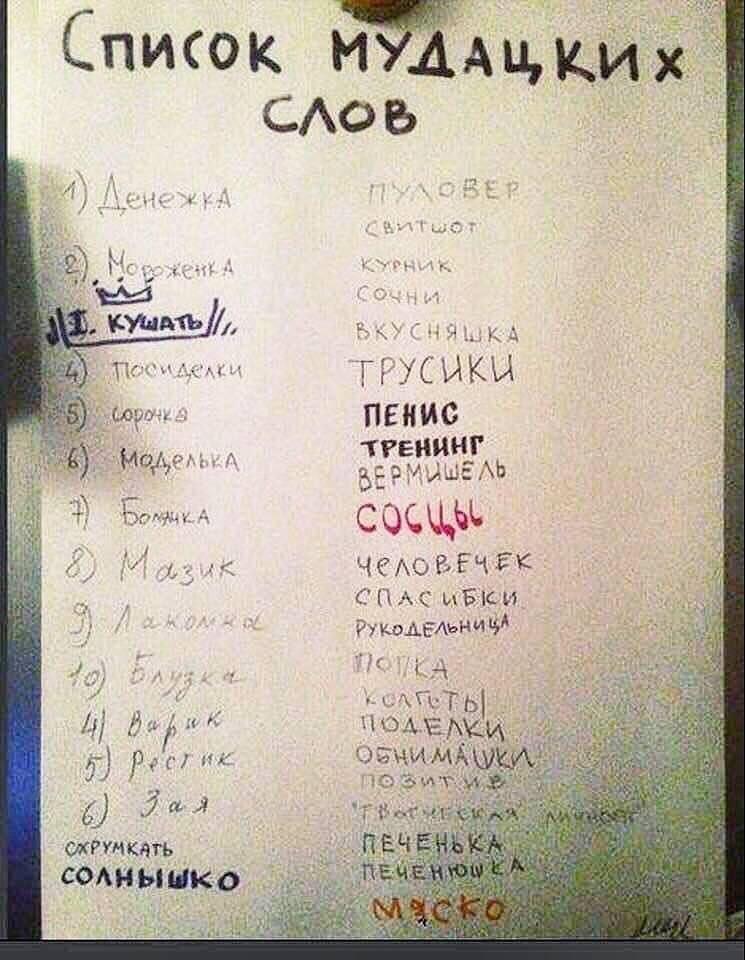 Список мудацких
слов
1) Денежка
2) Мороженка
I. кушать
4) Посиделки
5) сорочка
6) Моделька
7) Болячка
8) Мазик
9) Лакомка
10) Блузка
4) Варик
5) Рестик
6) Зая
схрумкать
солнышко
пуловер
свитшот
курник
сочни
вкусняшка
трусики
пенис
тренинг
вермишель
сосцы
человечек
спасибки
рукодельница
попка
колготы
поделки
обнимашки
позитив
"творческая личность"
печенька
печенюшка
мяско